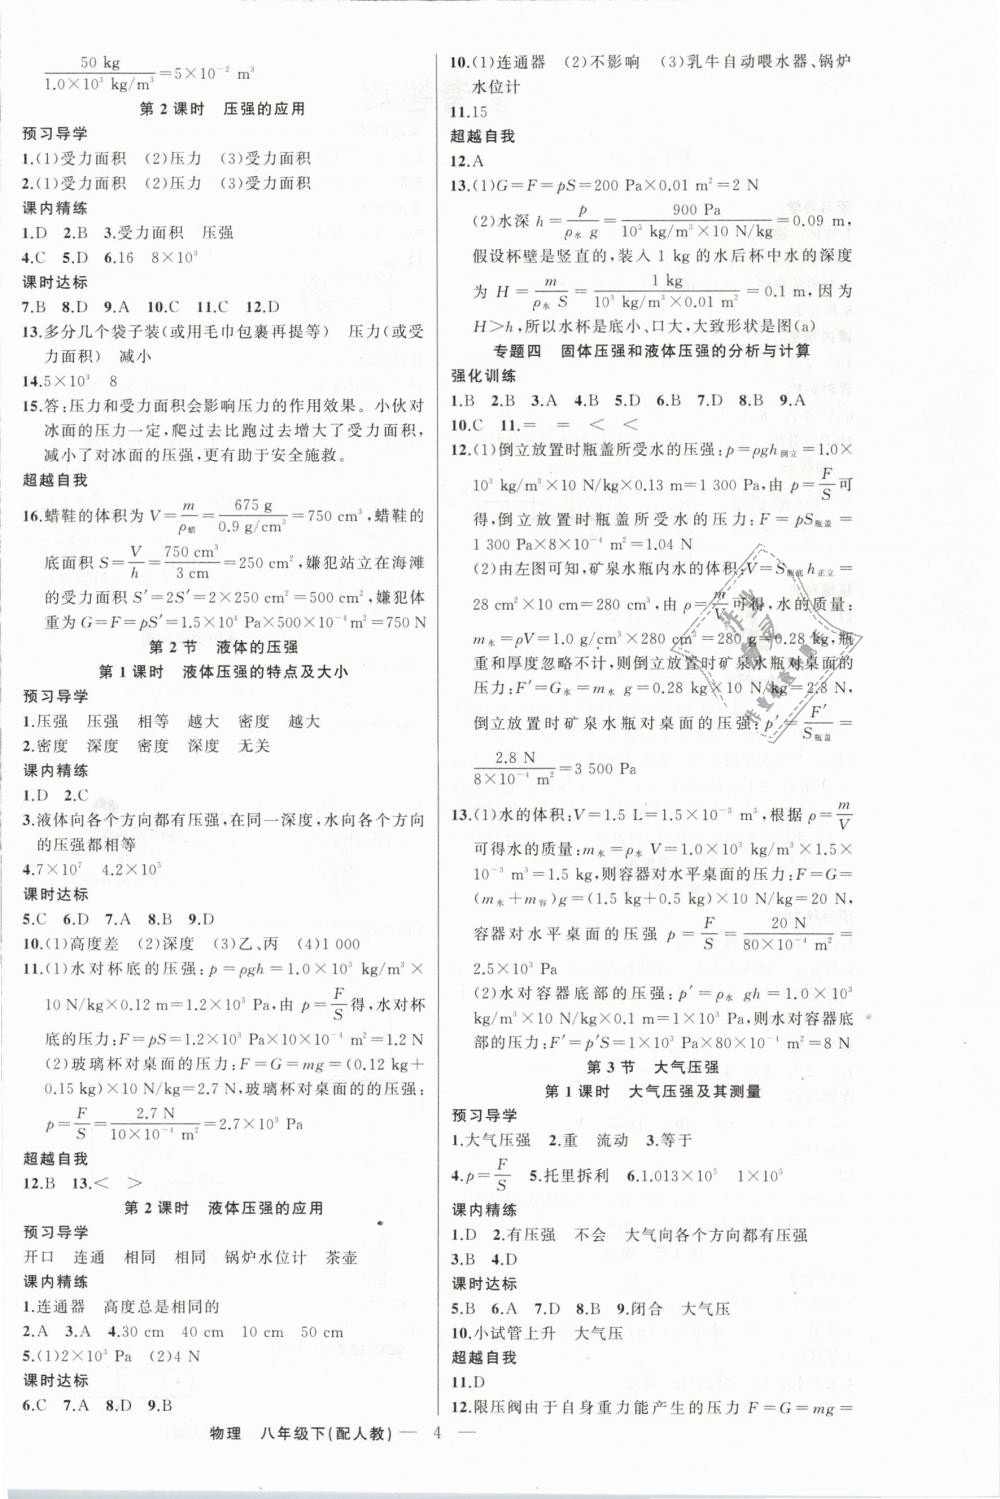 50 kg / 1.0×10³ kg/m³ =5×10⁻² m³
第 2 课时　压强的应用
预习导学
1.(1)受力面积　(2)压力　(3)受力面积
2.(1)受力面积　(2)压力　(3)受力面积
课内精练
1.D　2.B　3.受力面积　压强
4.C　5.D　6.16　8×10³
课时达标
7.B　8.D　9.A　10.C　11.C　12.D
13.多分几个袋子装(或用毛巾包裹再提等)　压力(或受
力面积)　减小
14.5×10³　8
15.答:压力和受力面积会影响压力的作用效果。小伙对
冰面的压力一定,爬过去比跑过去增大了受力面积,
减小了对冰面的压强,更有助于安全施救。
超越自我
16.蜡鞋的体积为 V=m/ρ蜡=675 g/0.9 g/cm³=750 cm³,蜡鞋的
底面积 S=V/h=750 cm³/3 cm=250 cm²,嫌犯站立在海滩
的受力面积 S′=2S′=2×250 cm²=500 cm²,嫌犯体
重为 G=F=pS′=1.5×10⁴ Pa×500×10⁻⁴ m²=750 N
第 2 节　液体的压强
第 1 课时　液体压强的特点及大小
预习导学
1.压强　压强　相等　越大　密度　越大
2.密度　深度　密度　深度　无关
课内精练
1.D　2.C
3.液体向各个方向都有压强,在同一深度,水向各个方向
的压强都相等
4.7×10⁷　4.2×10⁵
课时达标
5.C　6.D　7.A　8.B　9.D
10.(1)高度差　(2)深度　(3)乙、丙　(4)1 000
11.(1)水对杯底的压强:p=ρgh=1.0×10³ kg/m³×
10 N/kg×0.12 m=1.2×10³ Pa,由 p=F/S得,水对杯
底的压力:F=pS=1.2×10³ Pa×10×10⁻⁴ m²=1.2 N
(2)玻璃杯对桌面的压力:F=G=mg=(0.12 kg+
0.15 kg)×10 N/kg=2.7 N,玻璃杯对桌面的的压强:
p=F/S=2.7 N/10×10⁻⁴ m²=2.7×10³ Pa
超越自我
12.B　13.<　>
第 2 课时　液体压强的应用
预习导学
开口　连通　相同　相同　锅炉水位计　茶壶
课内精练
1.连通器　高度总是相同的
2.A　3.A　4.30 cm　40 cm　10 cm　50 cm
5.(1)2×10³ Pa　(2)4 N
课时达标
6.C　7.A　8.D　9.B
10.(1)连通器　(2)不影响　(3)乳牛自动喂水器、锅炉
水位计
11.15
超越自我
12.A
13.(1)G=F=pS=200 Pa×0.01 m²=2 N
(2)水深 h=p/ρ水 g=900 Pa/10³ kg/m³×10 N/kg=0.09 m,
假设杯壁是竖直的,装入 1 kg 的水后杯中水的深度
为 H=m/ρ水 S=1 kg/10³ kg/m³×0.01 m²=0.1 m,因为
H>h,所以水杯是底小、口大,大致形状是图(a)
专题四　固体压强和液体压强的分析与计算
强化训练
1.B　2.B　3.A　4.B　5.D　6.B　7.D　8.B　9.A
10.C　11.=　=　<　<
12.(1)倒立放置时瓶盖所受水的压强:p=ρgh倒立=1.0×
10³ kg/m³×10 N/kg×0.13 m=1 300 Pa,由 p=F/S可
得,倒立放置时瓶盖所受水的压力:F=pS瓶盖=
1 300 Pa×8×10⁻⁴ m²=1.04 N
(2)由左图可知,矿泉水瓶内水的体积:V=S瓶底h正立=
28 cm²×10 cm=280 cm³,由 ρ=m/V可得,水的质量:
m水=ρV=1.0 g/cm³×280 cm³=280 g=0.28 kg,瓶
重和厚度忽略不计,则倒立放置时矿泉水瓶对桌面的
压力:F′=G水=m水 g=0.28 kg×10 N/kg=2.8 N,
倒立放置时矿泉水瓶对桌面的压强:p′=F′/S瓶盖=
2.8 N/8×10⁻⁴ m²=3 500 Pa
13.(1)水的体积:V=1.5 L=1.5×10⁻³ m³,根据 ρ=m/V
可得水的质量:m水=ρ水 V=1.0×10³ kg/m³×1.5×
10⁻³ m³=1.5 kg,则容器对水平桌面的压力:F=G=
(m水+m容)g=(1.5 kg+0.5 kg)×10 N/kg=20 N,
容器对水平桌面的压强 p=F/S=20 N/80×10⁻⁴ m²=
2.5×10³Pa
(2)水对容器底部的压强:p′=ρ水 gh=1.0×10³
kg/m³×10 N/kg×0.1 m=1×10³ Pa,则水对容器底
部的压力:F′=p′S=1×10³ Pa×80×10⁻⁴ m²=8 N
第 3 节　大气压强
第 1 课时　大气压强及其测量
预习导学
1.大气压强　2.重　流动　3.等于
4.p=F/S　5.托里拆利　6.1.013×10⁵　1×10⁵
课内精练
1.D　2.有压强　不会　大气向各个方向都有压强
3.B　4.D
课时达标
5.B　6.A　7.D　8.B　9.闭合　大气压
10.小试管上升　大气压
超越自我
11.D
12.限压阀由于自身重力能产生的压力 F=G=mg=
物理　八年级下(配人教)— 4 —